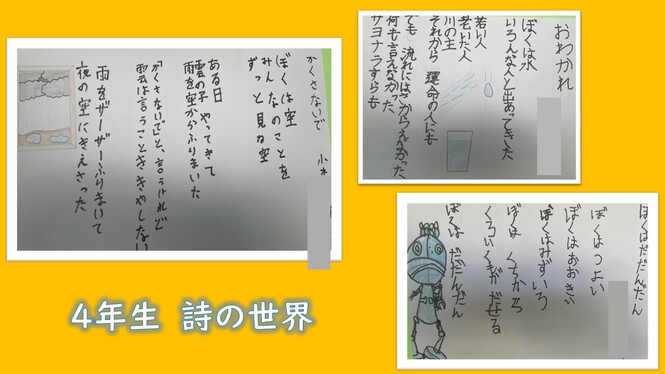 おわかれ
ぼくは水
いろんな人と出あってきた
若い人
老いた人
川の主
それから 運命の人にも
でも 流れにはさからえなかった
何も言えなかった
サヨナラすらも
かくさないで
ぼくは空
みんなのことを
ずっと見る空
ある日
雲の子 やってきて
雨を空からふりまいた
「かくさないで」と、言うけれど
雲は言うことききやしない
雨をザーザーふりまいて
夜の空にきえさった
ぼくはだだんだん
ぼくはつよい
ぼくはおおきい
ぼくはみずいろ
ぼくは くちから
くろいくもが だせる
ぼくは だだんだん
4年生 詩の世界